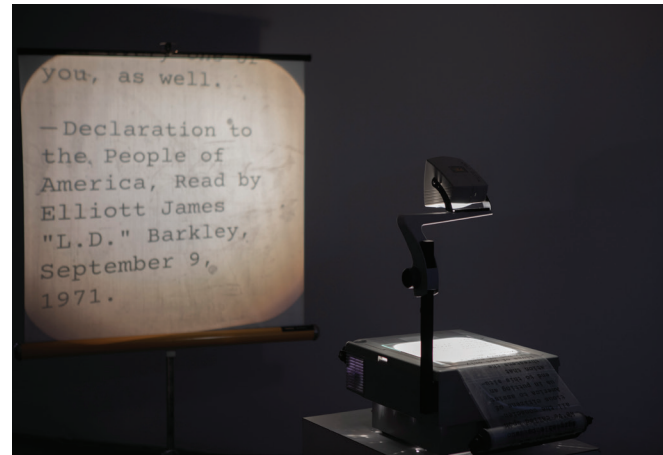 every one of
you, as well.
—Declaration to
the People of
America, Read by
Elliott James
"L.D." Barkley,
September 9,
1971.